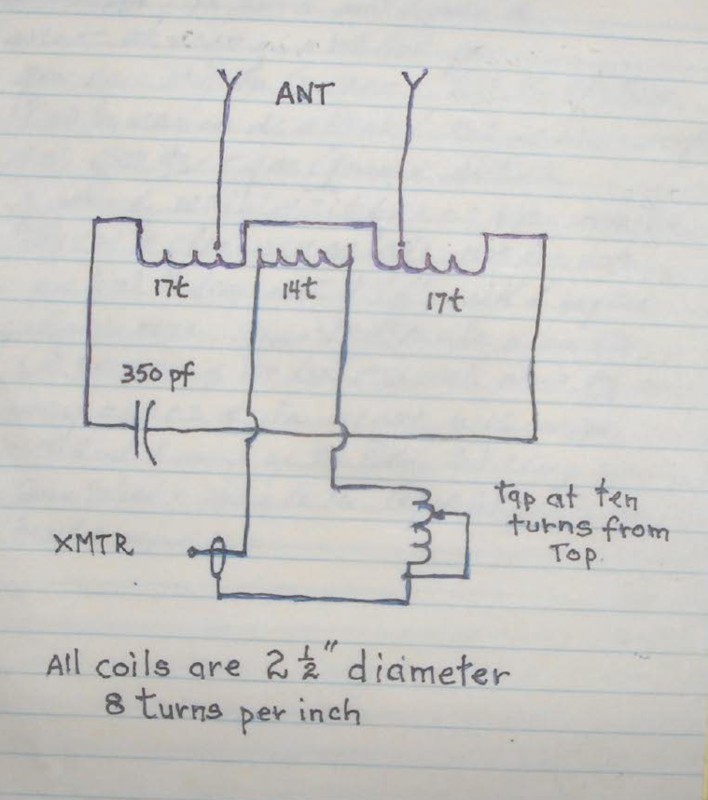 ANT
17t
14t
17t
350 pf
Tap at ten
turns from
Top.
XMTR
All coils are 2 1/2" diameter
8 turns per inch